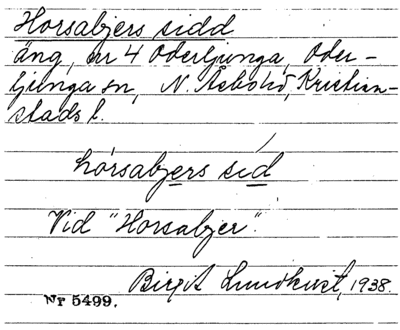 Horsabjers sidd
äng, nr 4 Oderljunga, Oder-
ljunga sn, N. Åsbohd, Kristian-
stads l.
hórsabjers síd
Vid "Horsabjer".
Birgit Lundkvist, 1938.
Nr 5499.